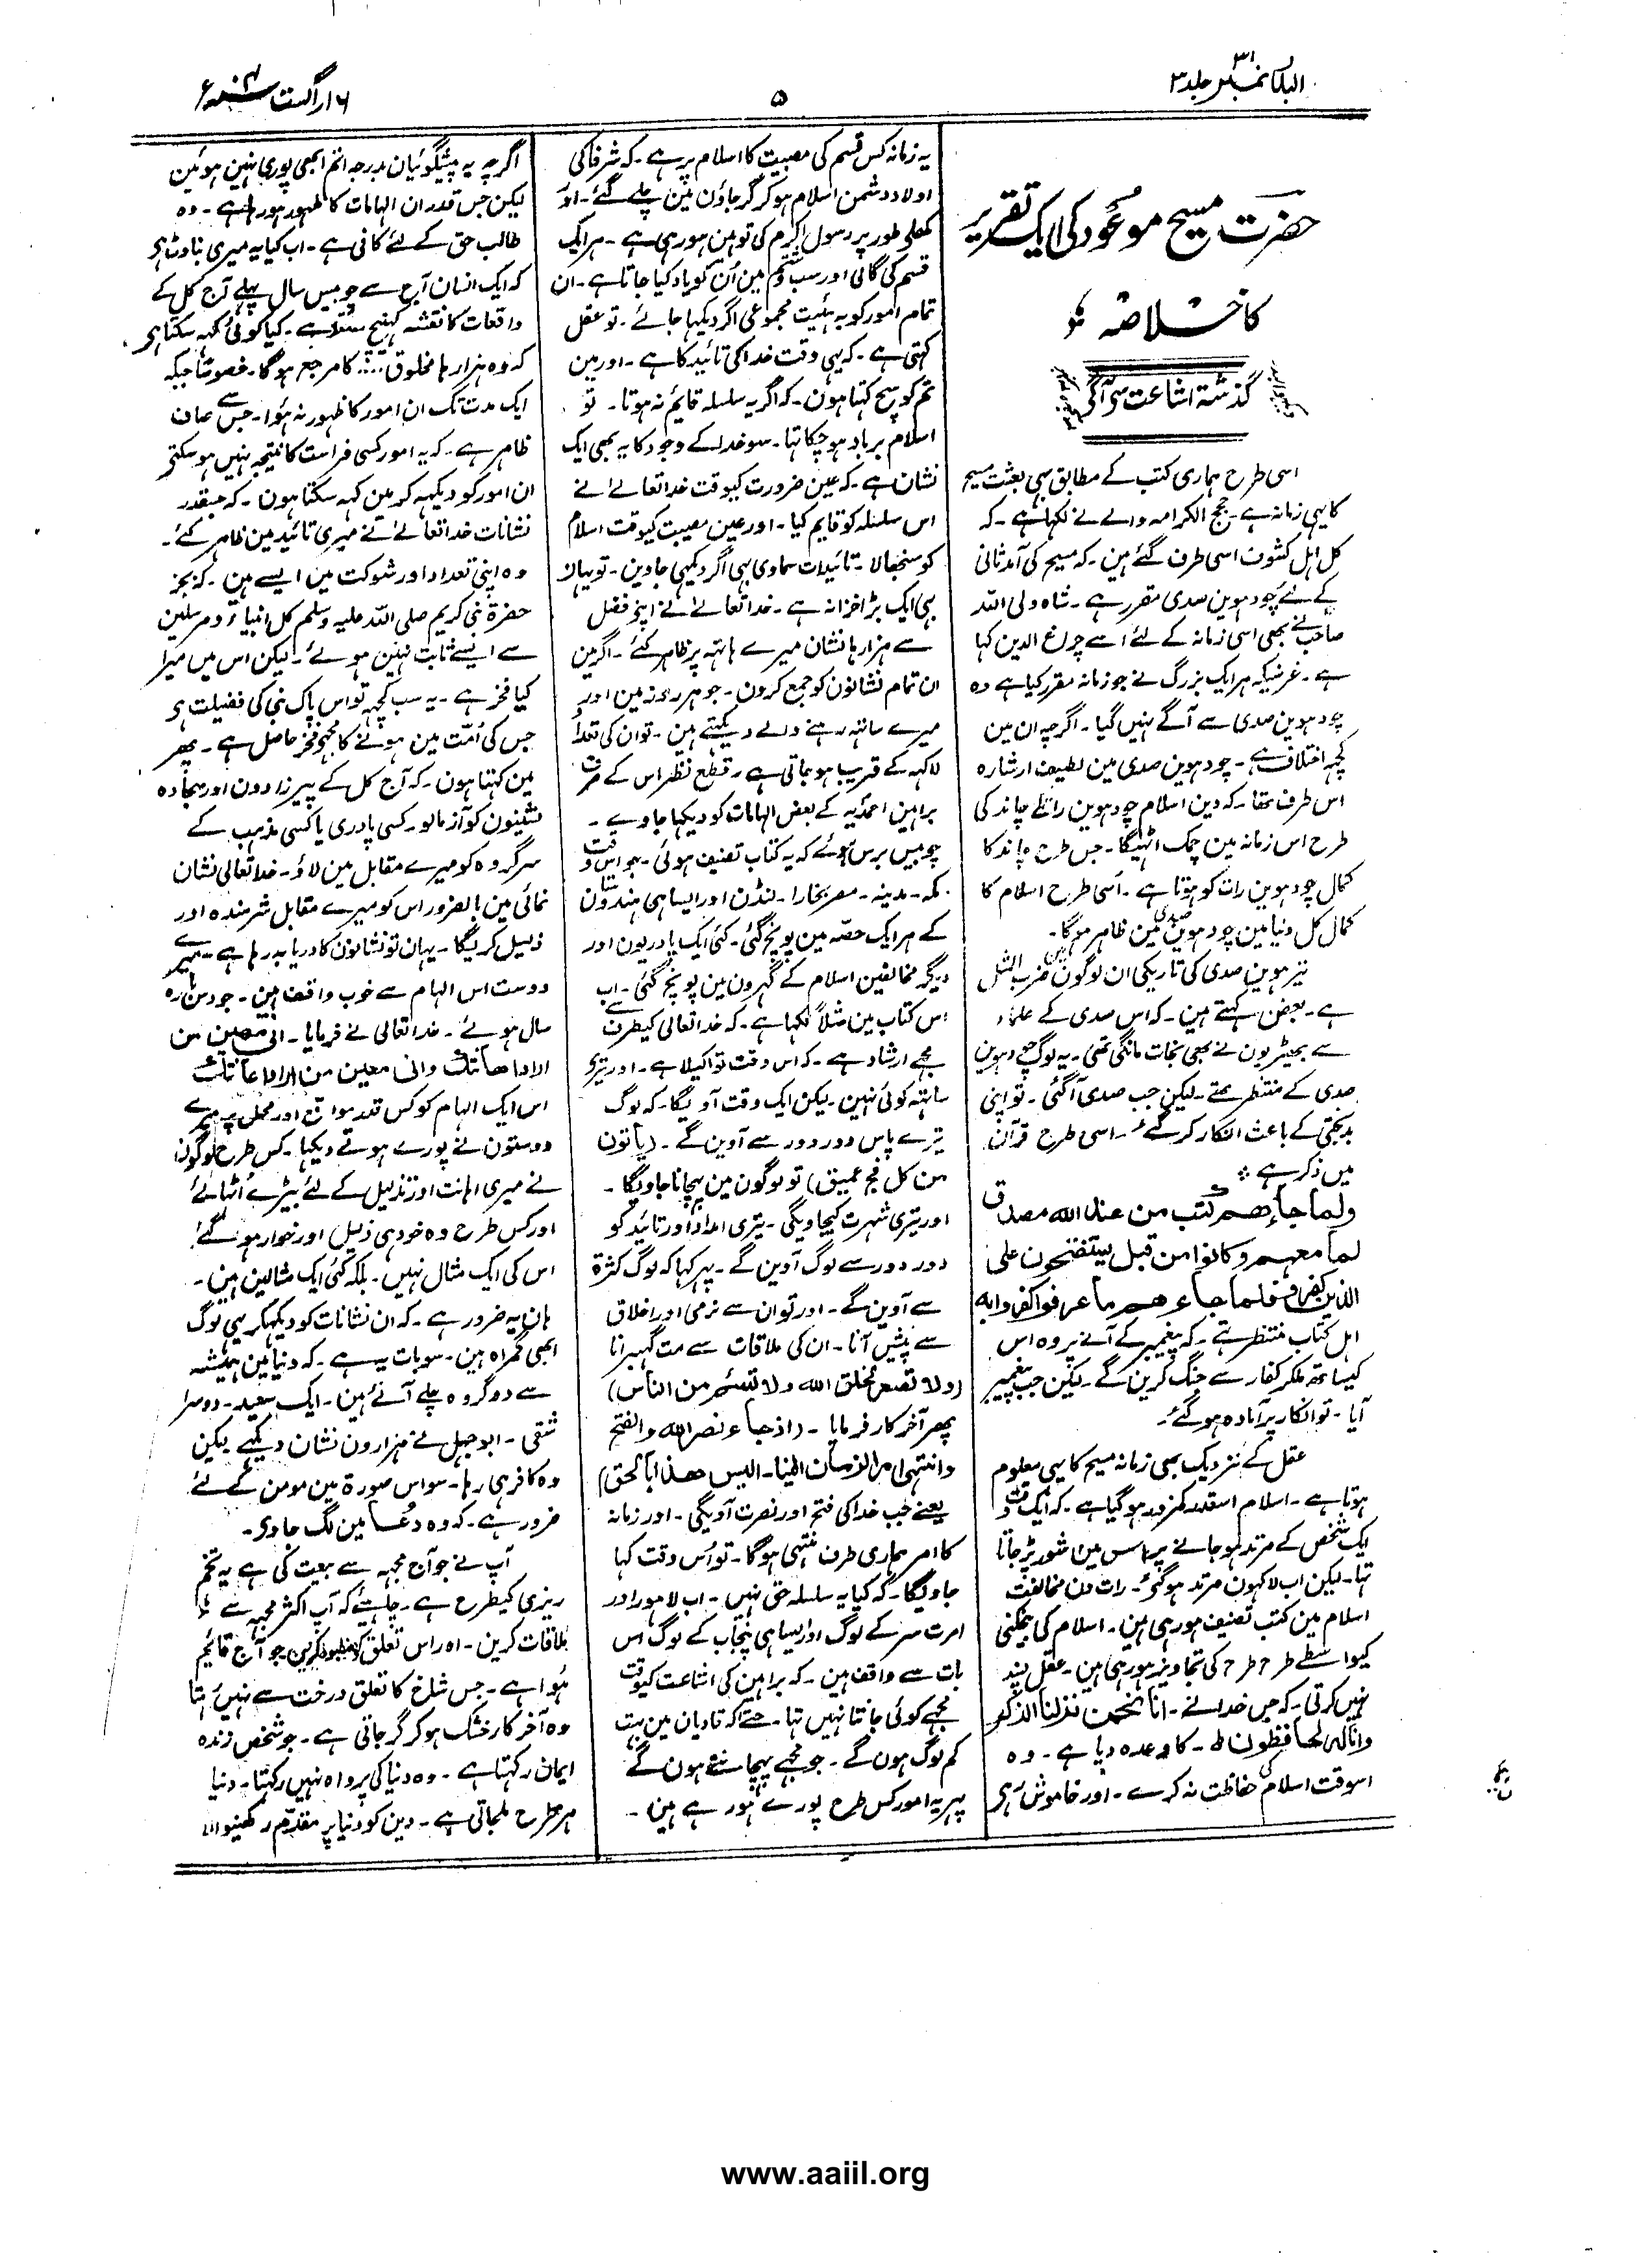 البدر نمبر ۳۱ جلد ۳
۵
۱۶ اگست ۱۹۰۴ء
حضرت مسیح موعود کی ایک تقریر
کا خلاصہ
گذشتہ اشاعت سے آگے
اسی طرح ہماری کتب کے مطابق بہی بعثت مسیح
کا یہی زمانہ ہے۔ حجج الکرامہ والے نے لکہا ہے۔ کہ
کل اہل کشوف اسی طرف گئے ہین۔ کہ مسیح کی آمد ثانی
کے لئے چودہوین صدی مقرر ہے۔ شاہ ولی اللہ
صاحب نے بھی اسی زمانہ کے لئے اسے چراغ الدین کہا
ہے۔ غرضیکہ ہر ایک بزرگ نے جو زمانہ مقرر کیا ہے وہ
چودہوین صدی سے آگے نہیں گیا۔ اگرچہ ان مین
کچہہ اختلاف ہے۔ چودہوین صدی مین لطیف اشارہ
اس طرف تھا۔ کہ دین اسلام چودہوین رات کے چاند کی
طرح اس زمانہ مین چمک اٹہیگا۔ جس طرح چاند کا
کمال چودہوین رات کو ہوتا ہے۔ اسی طرح اسلام کا
کمال کل دنیا مین چودہوین صدی مین ظاہر ہوگا۔
تیرہوین صدی کی تاریکی ان لوگون مین ضرب المثل
ہے۔ بعض کہتے ہین۔ کہ اس صدی کے علماء
سے بھیڑیون نے بھی نجات مانگی تھی۔ یہ لوگ چودہوین
صدی کے منتظر تھے۔ لیکن جب صدی آگئی۔ تو اپنی
بدبختی کے باعث انکار کر گئے۔ اسی طرح قرآن
میں ذکر ہے
ولما جاءهم كتب من عند الله مصدق
لما معهم وكانوا من قبل يستفتحون على
الذين كفروا فلما جاءهم ما عرفوا كفروا به
اہل کتاب منتظر تہے۔ کہ پیغمبر کے آنے پر وہ اس
کیساتھ ملکر کفار سے جنگ کرین گے۔ لیکن جب پیغمبر
آیا۔ تو انکار پر آمادہ ہو گئے۔
عقل کے نزدیک بھی زمانہ مسیح کا یہی معلوم
ہوتا ہے۔ اسلام اسقدر کمزور ہوگیا ہے۔ کہ ایک وقت
ایک شخص کے مرتد ہو جانے پر اس مین شور پڑ جاتا
تہا۔ لیکن اب لاکہون مرتد ہوگئے۔ رات دن مخالفت
اسلام مین کتب تصنیف ہو رہی ہین۔ اسلام کی بیخکنی
کیواسطے طرح طرح کی تجاویز ہو رہی ہین۔ عقل پسند
نہیں کرتی۔ کہ جس خدا نے۔ انا نحن نزلنا الذكر
وانا له لحافظون ط۔ کا وعدہ دیا ہے۔ وہ
اسوقت اسلام کی حفاظت نہ کرے۔ اور خاموش رہے
یہ زمانہ کس قسم کی مصیبت کا اسلام پر ہے۔ کہ شرفا کی
اولاد دشمن اسلام ہو کر گرجاؤن مین چلے گئے۔ اور
کھلے طور پر رسول اکرم کی توہین ہو رہی ہے۔ ہر ایک
قسم کی گالی اور سب و شتم مین ان کو یاد کیا جاتا ہے۔ ان
تمام امور کو بہ ہئیت مجموعی اگر دیکہا جائے۔ تو عقل
کہتی ہے۔ کہ یہی وقت خدا کی تائید کا ہے۔ اور مین
تم کو سچ کہتا ہون۔ کہ اگر یہ سلسلہ قایم نہ ہوتا۔ تو
اسلام برباد ہو چکا تہا۔ سو خدا کے وجود کا یہ بھی ایک
نشان ہے۔ کہ عین ضرورت کیوقت خدا تعالےٰ نے
اس سلسلہ کو قایم کیا۔ اور عین مصیبت کیوقت اسلام
کو سنبھالا۔ تائیدات سماوی بہی اگر دیکہی جاوین۔ تو یہان
بہی ایک بڑا خزانہ ہے۔ خدا تعالےٰ نے اپنے فضل
سے ہزارہا نشان میرے ہاتہہ پر ظاہر کئے۔ اگر مین
ان تمام نشانون کو جمع کرون۔ جو ہر روز مین اور
میرے ساتہہ رہنے والے دیکہتے ہین۔ تو ان کی تعداد
لاکہہ کے قریب ہو جاتی ہے۔ قطع نظر اس کے صرف
براہین احمدیہ کے بعض الہامات کو دیکہا جاوے۔
چوبیس برس ہوئے کہ یہ کتاب تصنیف ہوئی۔ جو اس وقت
مکہ۔ مدینہ۔ مصر بخارا۔ لنڈن اور ایسا ہی ہندوستان
کے ہر ایک حصّہ مین پہونچ گئی۔ کئی ایک پادریون اور
دیگر مخالفین اسلام کے گہرون مین پہونچ گئی۔ اب
اس کتاب مین مثلاً لکہا ہے۔ کہ خدا تعالی کیطرف سے
مجہے ارشاد ہے۔ کہ اس وقت تو اکیلا ہے۔ اور تیرے
ساتہہ کوئی نہین۔ لیکن ایک وقت آویگا۔ کہ لوگ
تیرے پاس دور دور سے آوین گے۔ (یأتون
من كل فج عميق) تو لوگون مین پہچانا جاویگا۔
اور تیری شہرت کیجاویگی۔ تیری امداد اور تائید کو
دور دور سے لوگ آوین گے۔ پہر کہا کہ لوگ کثرۃ
سے آوین گے۔ اور تو ان سے نرمی اور اخلاق
سے پیش آنا۔ ان کی ملاقات سے مت گہبرانا
(ولا تصعر لخلق الله ولا تسئم من الناس)
پھر آخر کار فرمایا۔ (اذ جاء نصر الله والفتح
وانتهى امر الزمان الينا۔ اليس هذا بالحق)
یعنے جب خدا کی فتح اور نصرت آویگی۔ اور زمانہ
کا امر ہماری طرف منتہی ہوگا۔ تو اس وقت کہا
جاویگا۔ کہ کیا یہ سلسلہ حق نہیں۔ اب لاہور اور
امرت سر کے لوگ اور ایسا ہی پنجاب کے لوگ اس
بات سے واقف ہین۔ کہ براہین کی اشاعت کیوقت
مجہے کوئی جانتا نہیں تہا۔ حتے کہ قادیان مین بہت
کم لوگ ہون گے۔ جو مجہے پہچانتے ہون گے
پہر یہ امور کس طرح پورے ہو رہے ہین۔
اگرچہ یہ پیشگوئیان بدرجہ اتم ابھی پوری نہین ہوئین
لیکن جس قدر ان الہامات کا ظہور ہو رہا ہے۔ وہ
طالب حق کے لئے کافی ہے۔ اب کیا یہ میری بناوٹ ہے
کہ ایک انسان آج سے چوبیس سال پہلے آج کل کے
واقعات کا نقشہ کہینچ سکتا ہے۔ کیا کوئی کہہ سکتا ہے
کہ وہ ہزارہا مخلوق کا مرجع ہوگا۔ خصوصاً جبکہ
ایک مدت تک ان امور کا ظہور نہ ہوا۔ جس سے صاف
ظاہر ہے۔ کہ یہ امور کسی فراست کا نتیجہ نہیں ہو سکتے
ان امور کو دیکہہ کر مین کہہ سکتا ہون۔ کہ جسقدر
نشانات خدا تعالےٰ نے میری تائید مین ظاہر کئے۔
وہ اپنی تعداد اور شوکت میں ایسے ہین۔ کہ بجز
حضرۃ نبی کریم صلی اللہ علیہ وسلم کل انبیاء و مرسلین
سے ایسے ثابت نہین ہوئے۔ لیکن اس میں میرا
کیا فخر ہے۔ یہ سب کچہہ تو اس پاک نبی کی فضیلت ہے
جس کی امّت مین ہونے کا مجہے فخر حاصل ہے۔ پھر
مین کہتا ہون۔ کہ آج کل کے پیر زادون اور سجادہ
نشینون کو آزمالو۔ کسی پادری یا کسی مذہب کے
سرگروہ کو میرے مقابل مین لاؤ۔ خدا تعالی نشان
نمائی مین بالضرور اس کو میرے مقابل شرمندہ اور
ذلیل کریگا۔ یہان تو نشانون کا دریا بہہ رہا ہے۔ میرے
دوست اس الہام سے خوب واقف ہین۔ جو دس بارہ
سال ہوئے۔ خدا تعالی نے فرمایا۔ انی مهين من
اراد اهانتك وانی معين من اراد اعانتك
اس ایک الہام کو کس قدر مواقع اور محل پر میرے
دوستون نے پورے ہوتے دیکہا۔ کس طرح لوگون
نے میری اہانت اور تذلیل کے لئے بیڑے اٹہائے
اور کس طرح وہ خود ہی ذلیل اور خوار ہو گئے۔
اس کی ایک مثال نہیں۔ بلکہ کئی ایک مثالین ہین۔
ہان یہ ضرور ہے۔ کہ ان نشانات کو دیکہکر بہی لوگ
ابھی گمراہ ہین۔ سو بات یہ ہے۔ کہ دنیا مین ہمیشہ
سے دو گروہ چلے آئے ہین۔ ایک سعید۔ دوسرا
شقی۔ ابوجہل نے ہزارون نشان دیکہے لیکن
وہ کافر ہی رہا۔ سو اس صورۃ مین مومن کے لئے
ضرور ہے۔ کہ وہ دعا مین لگ جاوے۔
آپ نے جو آج مجہہ سے بیعت کی ہے یہ تخم
ریزی کیطرح ہے۔ چاہئے کہ آپ اکثر مجہہ سے
ملاقات کرین۔ اور اس تعلق کو مضبوط کرین جو آج قائم
ہوا ہے۔ جس شاخ کا تعلق درخت سے نہیں رہتا
وہ آخر کار خشک ہو کر گر جاتی ہے۔ جو شخص زندہ
ایمان رکہتا ہے۔ وہ دنیا کی پرواہ نہیں رکہتا۔ دنیا
ہر طرح ملجاتی ہے۔ دین کو دنیا پر مقدّم رکہنیوالا
www.aaiil.org